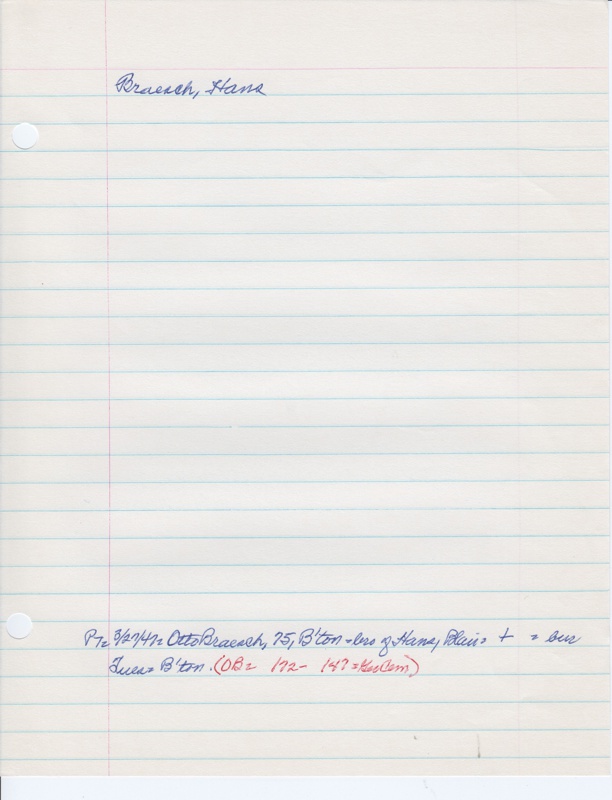 Braesch, Hans
P7= 3/27/47= Otto Braesch, 75, B'ton = bro of Hans, Blair = + = bur
Tues = B'ton. (OB= 172- 147 = Cem)